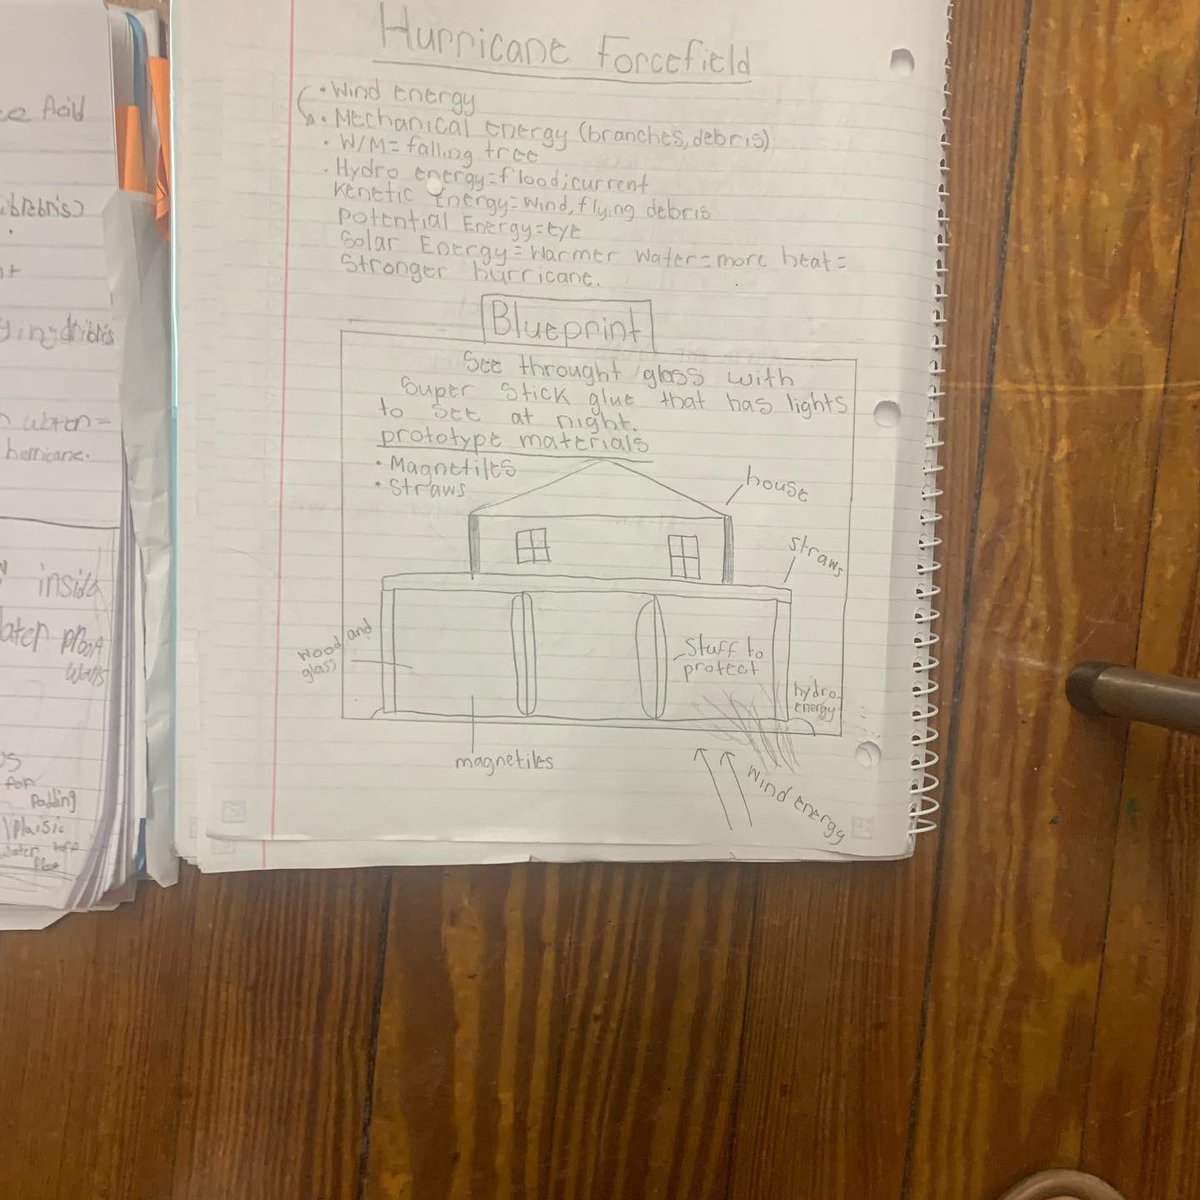 Hurricane Forcefield
• Wind energy
• Mechanical energy (branches, debris)
• W/M= falling tree
• Hydro energy=flood;current
Kenetic Energy=wind, flying debris
Potential Energy=Eye
Solar Energy=Warmer Water=more heat=
Stronger hurricane.
Blueprint
See throught glass with
Super stick glue that has lights
to see at night.
prototype materials
• Magnetiles
• Straws
house
straws
wood and
glass
Stuff to
protect
hydro
energy
magnetiles
wind energy
Acid
inside
proof
walls
for
Padding